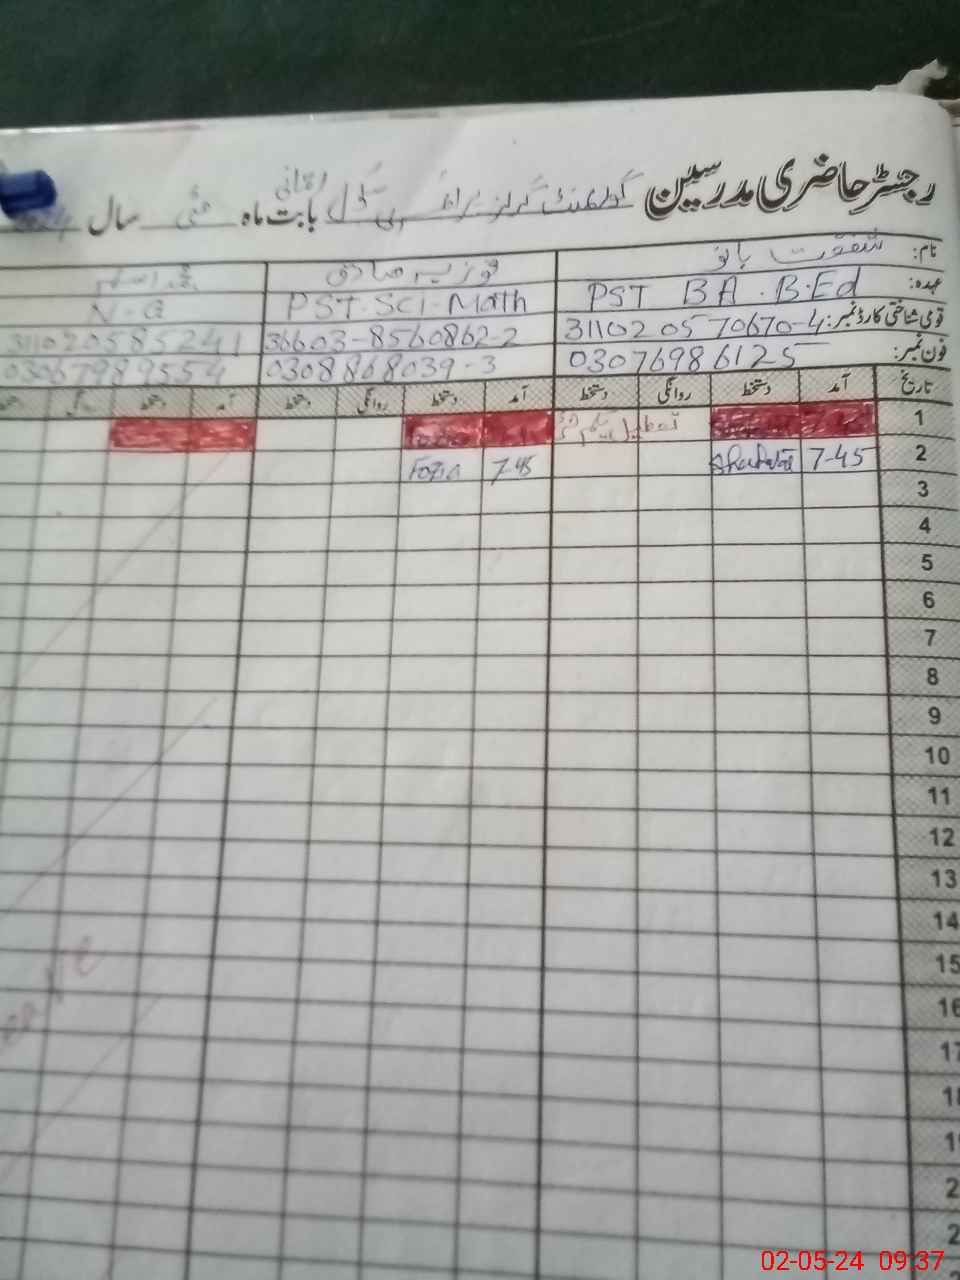 رجسٹر حاضری مدرسین گورنمنٹ گرلز پرائمری سکول بابت ماہ مئی سال
نام: شفقت بانو فوزیہ صادق
عہدہ: PST BA . B.Ed PST.Sci-Math N-Q
قومی شناختی کارڈ نمبر: 31102 05 70670-4 36603-8560862-2 311020585241
فون نمبر: 03076986125 0308868039-3 03067989554
تاریخ آمد دستخط روانگی دستخط آمد دستخط روانگی دستخط آمد دستخط روانگی
1 تعطیل یکم مئی
2 7-45 7-45 Fozia
3
4
5
6
7
8
9
10
11
12
13
14
15
16
17
02-05-24 09:37